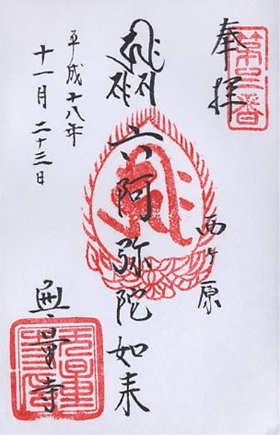 第三番
奉拝
西ヶ原
六阿弥陀如来
平成十八年
十一月二十三日
無量寺